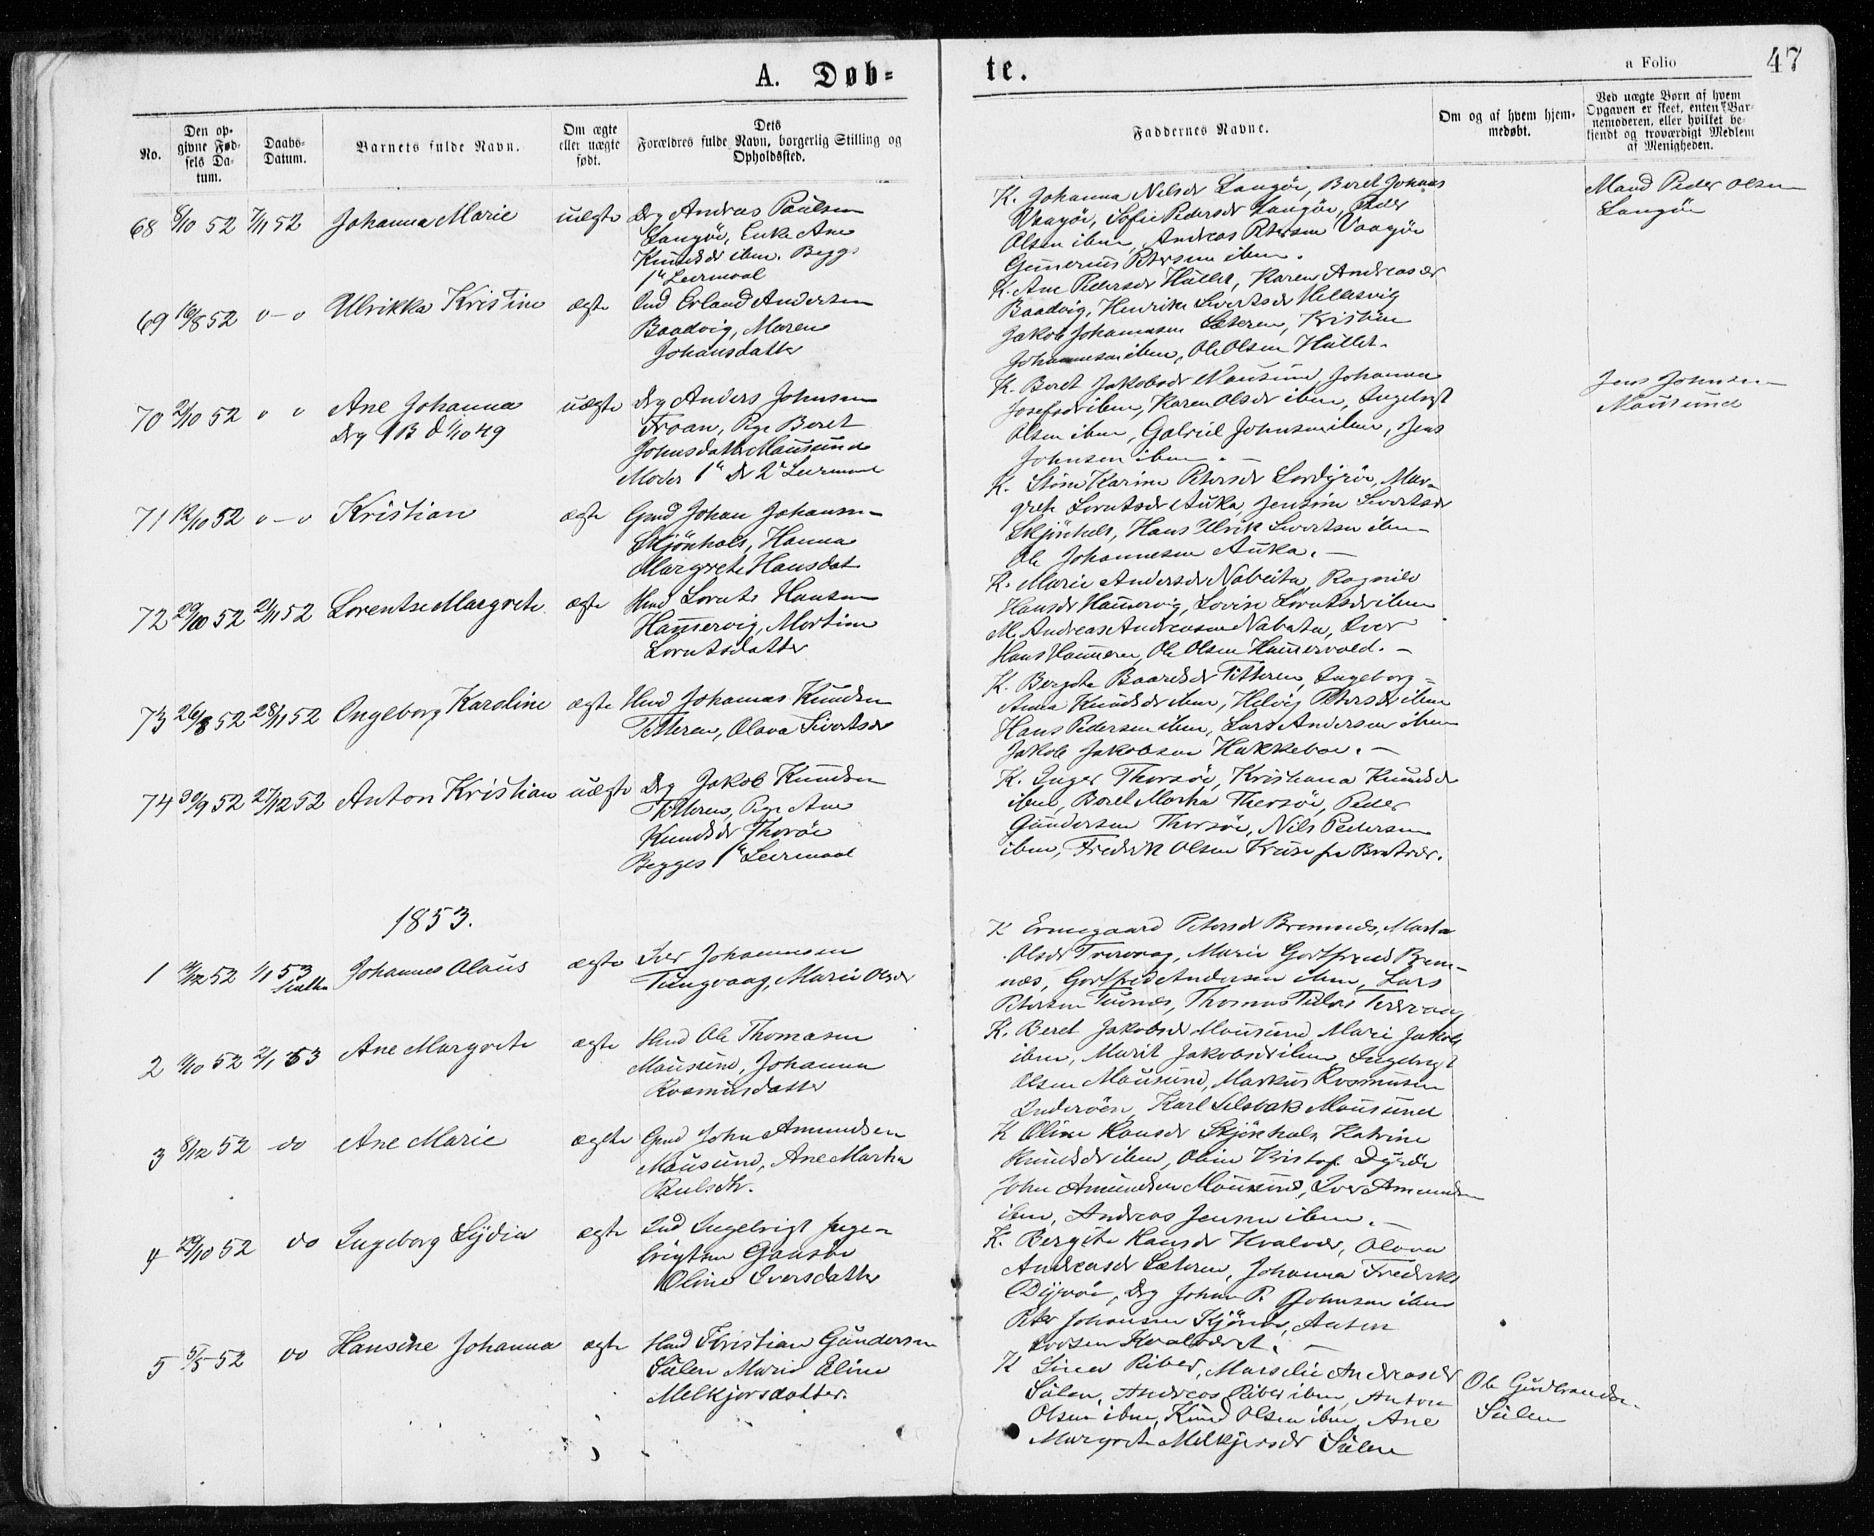 A. Døb-
te.
a Folio
47
No.
Den op-
givne Fød-
sels Da-
tum.
Daabs-
Datum.
Barnets fulde Navn.
Om ægte
eller uægte
født.
Dets
Forældres fulde Navn, borgerlig Stilling og
Opholdssted.
Faddernes Navne.
Om og af hvem hjem-
medøbt.
Ved uægte Børn af hvem
Opgaven er skeet, enten Bar-
nemoderen, eller hvilket be-
kjendt og troværdigt Medlem
af Menigheden.
68 8/10 52 7/11 52 Johanna Marie uægte
Drg Andreas Paulsen
Langöe, Enke Ane
Knudsdr ibm. Begg
1e Leiermaal
K. Johanna Nilsdr Langöe, Beret Johans
Vaagöe, Sofie Pedersdr Langöe, Peder
Olsen ibm, Andreas Petersen Vaagöe
Gunerius Petersen ibm.
Mand Peder Olsen
Langöe
69 16/8 52 o-o Ulrikka Kristine ægte
Ind Erland Andersen
Baadvig, Maren
Johansdatter
K. Ane Pedersdr Hallet, Karen Andreasdr
Baadvig, Henrikke Sivertsdr Hellesvig
Jakob Johannesen Sæteren, Kristian
Johannesen ibm, Ole Olsen Hallet.
70 2/10 52 o o Ane Johanna uægte
Drg 1 B d 1/10 49
Drg Anders Johnsen
Froan, Pige Beret
Johnsdatter Mausund
Moder 1e Dr 2e Leiermaal
K. Beret Jakobsdr Mausund, Johanna
Josefsdr ibm, Karen Olsdr ibm, Ingebrigt
Olsen ibm, Gabriel Johnsen ibm, Jens
Johnsen ibm.
Jens Johnsen
Mausund
71 12/10 52 o-o Kristian ægte
Gmd Johan Johansen
Skjönhals, Hanna
Margrete Hansdat
K. Stine Karine Petersdr Lordyröe, Mar-
grete Lorntsdr Auka, Jensine Sivertsdr
Skjönhals, Hans Ulrik Sivertsen ibm
Ole Johannesen Auka.
72 29/10 52 21/11 52 Lorentse Margrete ægte
Hmd Lornts Hansen
Hammervig, Mortine
Lorntsdatter
K. Marie Andersdr Nabeita, Ragnild
Hansdr Hammervig, Lovise Lorntsdr ibm
M. Andreas Andreasen Nabeita, Iver
Hans Hammeren, Ole Olsen Hammervold.
73 26/8 52 28/11 52 Ingeborg Karoline ægte
Hmd Johannes Knudsen
Titteren, Olava Sivertsdr
K. Bergete Baardsdr Titteren, Ingeborg
Anna Knudsdr ibm, Helvig Petersdr ibm
Hans Pedersen ibm, Lars Andersen ibm
Jakob Jakobsen Hakkeboe.
74 30/9 52 27/12 52 Anton Kristian uægte
Drg Jakob Knudsen
Titteren, Pige Ane
Knudsdr Thoröe
Begges 1e Leiermaal
K. Inger Thorsöe, Kristiana Knudsdr
ibm, Beret Marta Thorsöe, Peder
Gundersen Thorsöe, Nils Pedersen
ibm, Fredrik Olsen Kruse fra Bratvær.
1853.
1 4/12 52 1/1 53 Johannes Olaus ægte
Iver Johannesen
Tungvaag, Marie Olsdr
K Ermegaard Petersdr Bremnes, Marta
Olsdr Tverrvaag, Marie Gottfried Brem-
næs, Gottfred Andersen ibm, Lars
Petersen Tuenæs, Thomas Tverrvaag
2 4/10 52 2/1 53 Ane Margrete ægte
Hmd Ole Thomasen
Mausund, Johanna
Rasmusdatter
K. Beret Jakobsdr Mausund, Marie Jakobs
ibm, Marit Jakobsdr ibm, Ingebrigt
Olsen Mausund, Markus Rasmusen
Inderöen, Karl Selsbak Mausund
3 8/12 52 do Ane Marie ægte
Gmd John Amundsen
Mausund, Ane Martha
Paulsdtr.
K Oline Hansdr Skjönhals, Katrine
Knudsdr ibm, Oline Kristof. Dyröe
John Amundsen Mausund, Iver Amundsen
ibm, Andreas Jensen ibm.
4 29/10 52 do Ingeborg Lydia ægte
Ind Ingebrigt Inge-
brigtsen Gaasöe
Oline Iversdatter
K. Bergite Hansdr Kvalvær, Olava
Andreasdr Sæteren, Johanna Fredriks
Dyröe, Drg Johan P. Johnsen ibm
Peter Johansen Kjöröe, Anton
Kvalværet.
5 5/5 52 do Hansine Johanna ægte
Hmd Kristian Gundersen
Sulen Marie Eline
Melkjorsdatter.
K Sina Riber, Marselie Andreasdr
Sulen, Andreas Riber ibm, Anton
Olsen ibm, Knud Olsen ibm, Ane
Margrete Melkjorsdr Sulen
Ole Gudbrandsen
Sulen